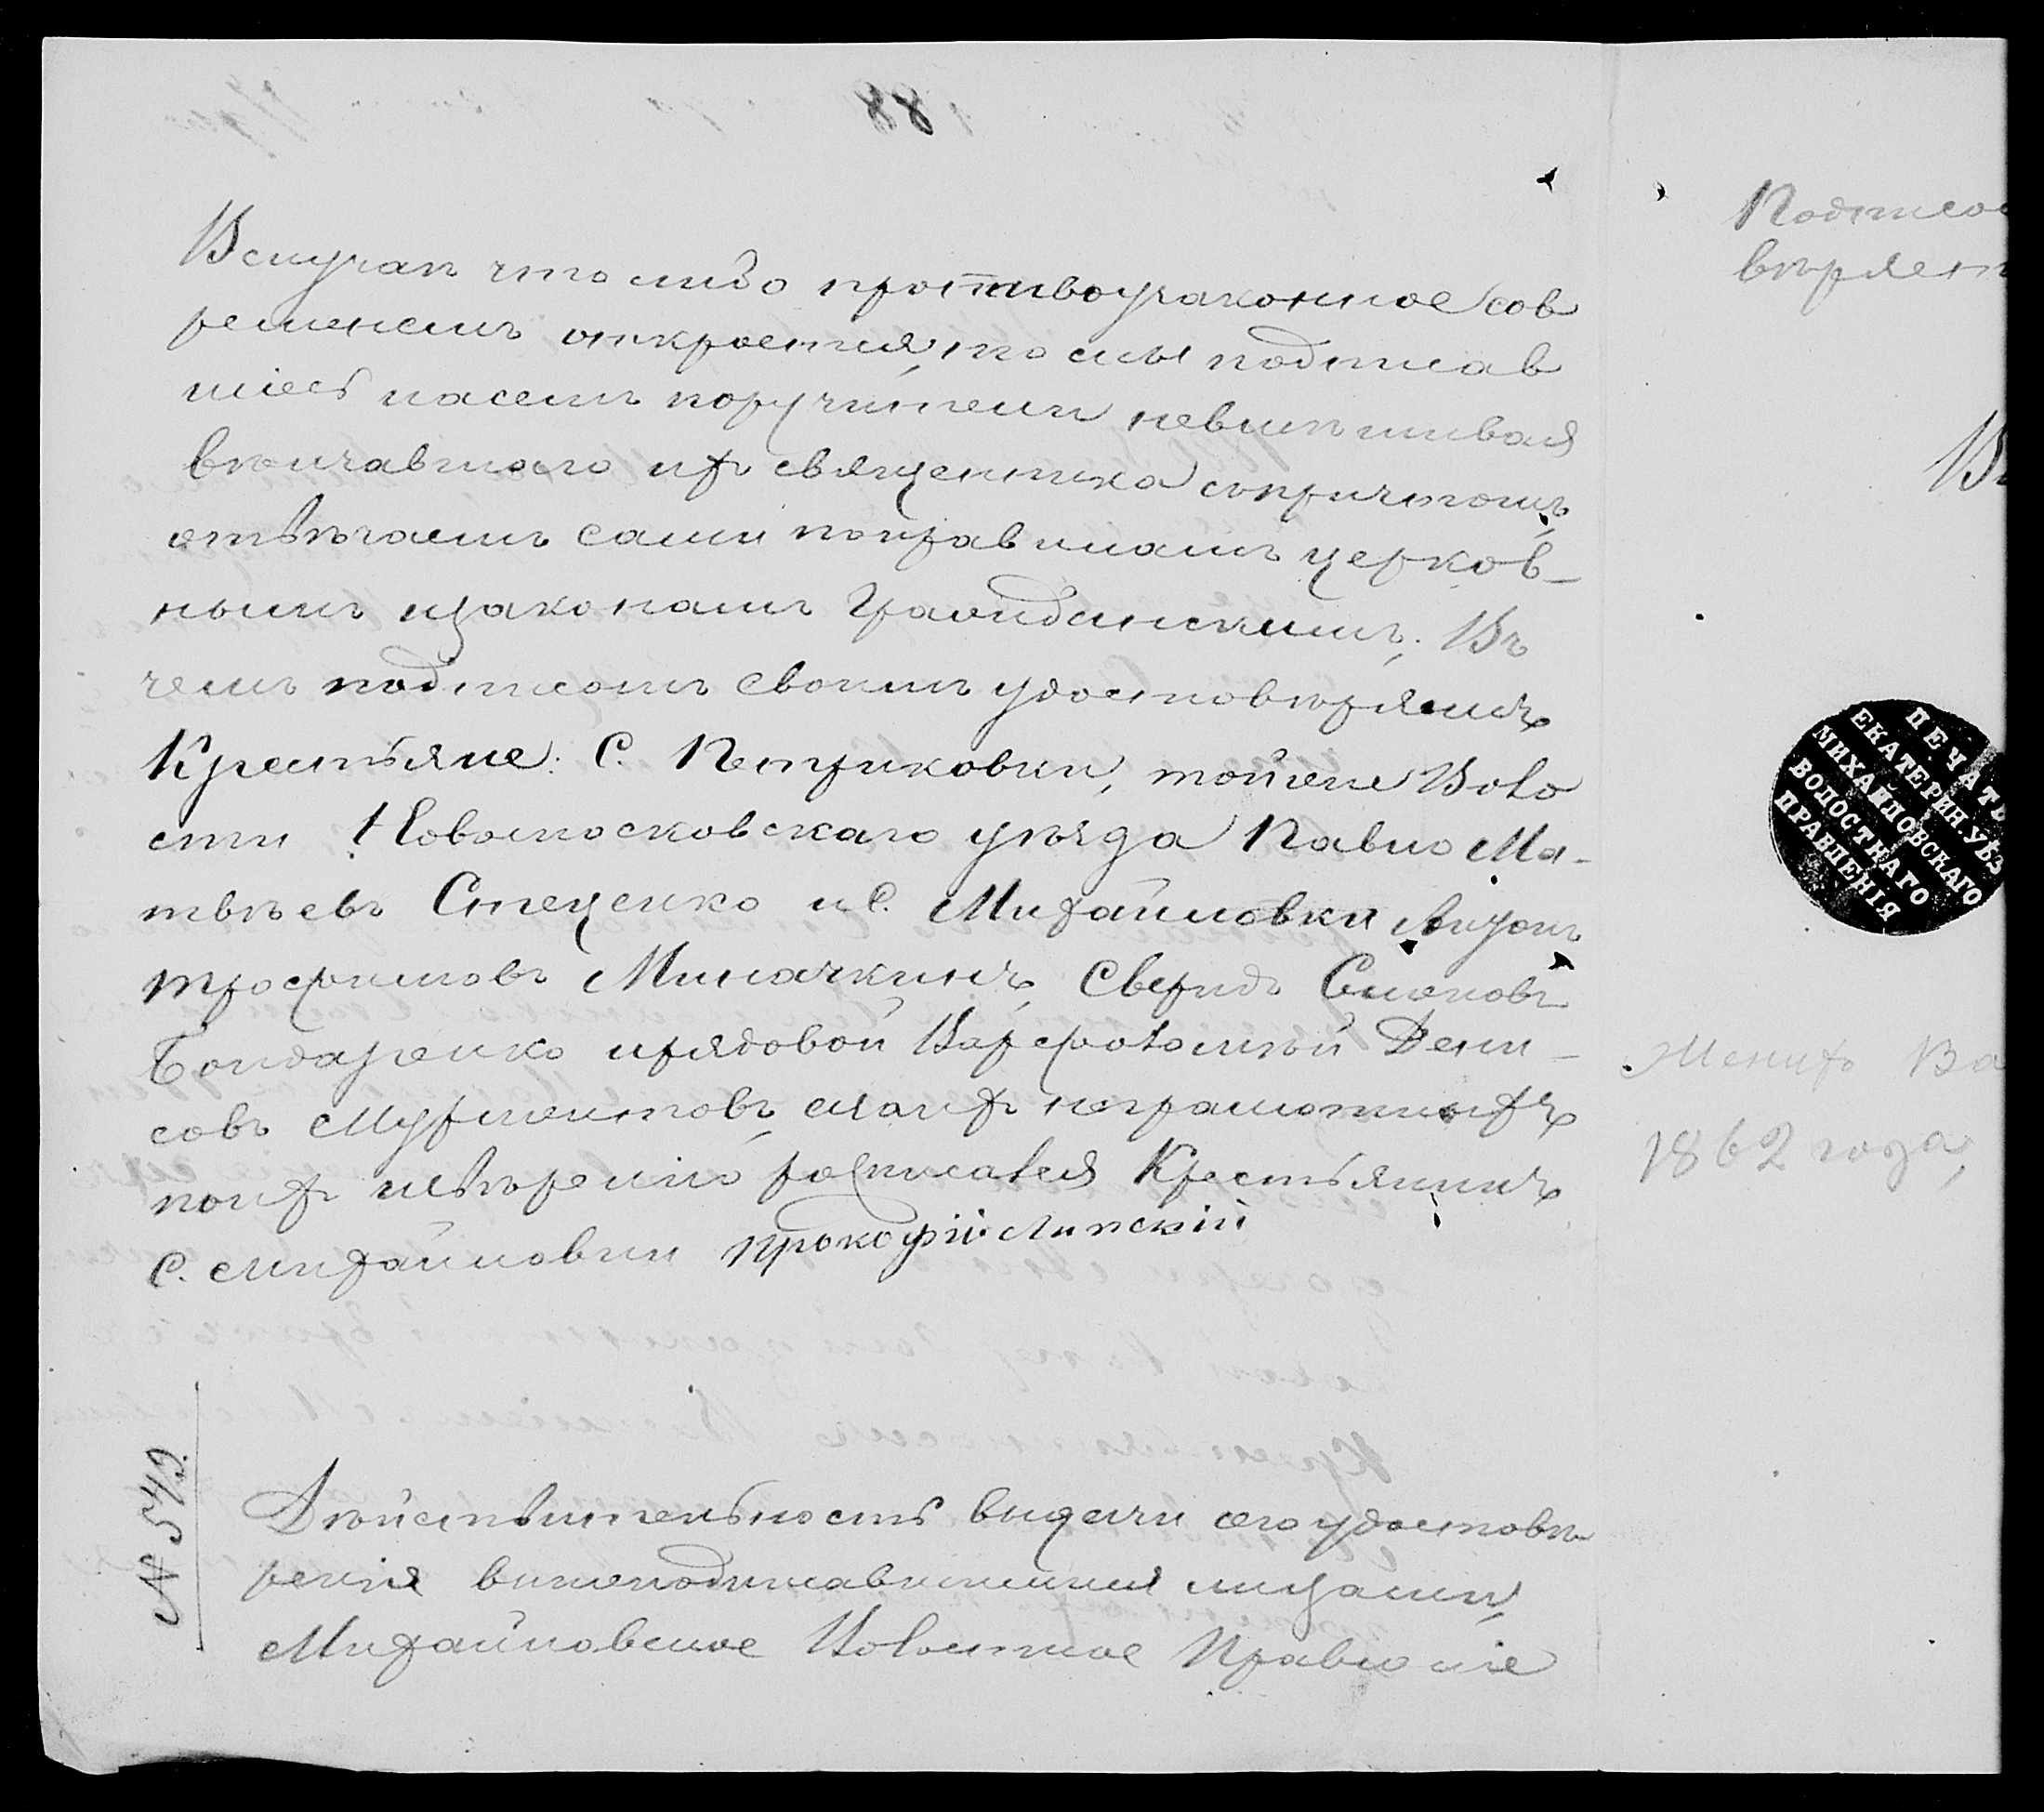 88
Вслучаѣ что либо противоузаконное сов
ременемъ откроется, то мы подписав
шіесь насемъ поручители невмѣшивая
вѣнчавшаго ихъ священника съпричтомъ,
отвѣчаемъ сами поправиламъ церков-
нымъ изаконамъ Гражданскимъ; Въ
чемъ подписомъ своимъ удостовѣряемъ
Крестьяне: С. Петриковки, тойже Воло
сти Новомосковскаго уѣзда Павло Ма-
твѣевъ Стеценко и С. Михайловки
трофимовъ Миначкинъ, Сверидъ Симоновъ
Бондаренко ирядовой Варфоломѣй Дени-
совъ, азаихъ неграмотныхъ
поихъ прозбѣ росписался Крестьянинъ
С. Михайловки Прокофій Липскій
№ 549.
Дѣйствительность выдачи сего удостовѣ
ренія вышеподписавшимися лицами,
Михайловское Волостное Правленіе
Подписо
вѣряет
В
ПЕЧАТЬ
ЕКАТЕРИН. УѢЗ
МИХАЙЛОВСКАГО
ВОЛОСТНАГО
ПРАВЛЕНІЯ
Женихъ Ва
1862 года,